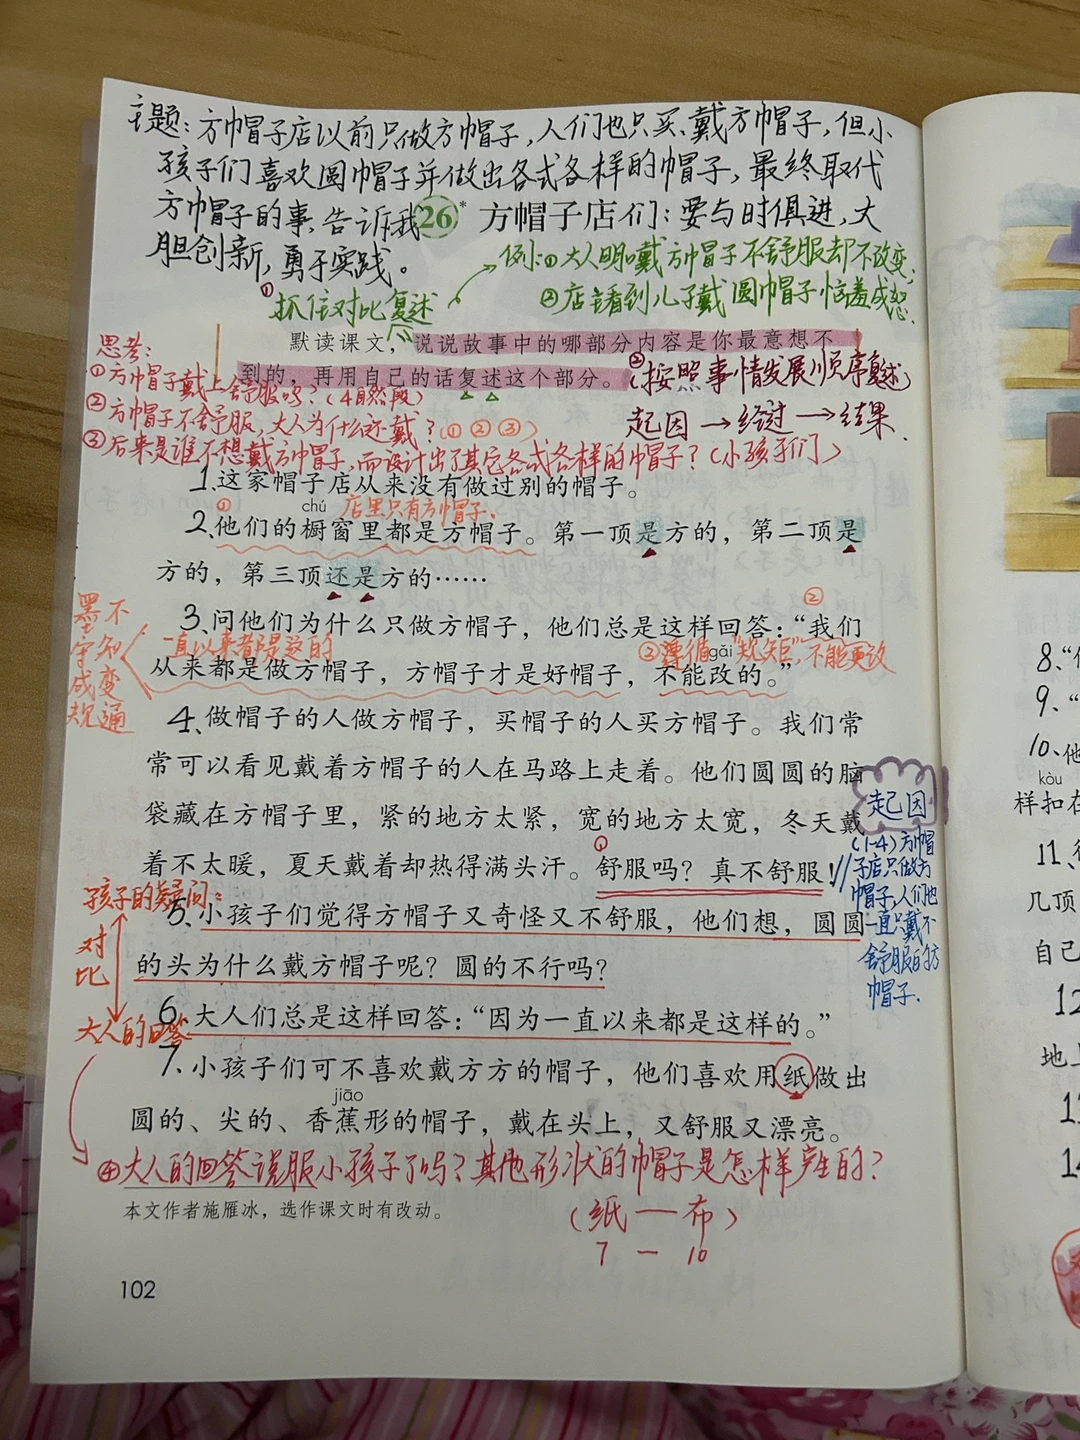 主题：方巾帽子店以前只做方帽子，人们也只买、戴方帽子，但小
孩子们喜欢圆帽子并做出各式各样的帽子，最终取代
方帽子的事，告诉我们：要与时俱进，大
26* 方帽子店
胆创新，勇于实践。
例：①大人明知戴方帽子不舒服却不改变；
②店主看到儿子戴圆帽子恼羞成怒.
①抓住对比复述
默读课文，说说故事中的哪部分内容是你最意想不
到的，再用自己的话复述这个部分。
②(按照事情发展顺序复述)
起因→经过→结果.
思考：
①方帽子戴上舒服吗？(4自然段)
②方帽子不舒服，大人为什么还戴？(①②③)
③后来是谁不想戴方帽子，而设计出了其它各式各样的帽子？(小孩子们)
1、这家帽子店从来没有做过别的帽子。
① chú 店里只有方帽子.
2、他们的橱窗里都是方帽子。第一顶是方的，第二顶是
方的，第三顶还是方的……
②
3、问他们为什么只做方帽子，他们总是这样回答：“我们
一直以来都是这的
gǎi
②遵循“规矩”，不能更改
从来都是做方帽子，方帽子才是好帽子，不能改的。”
墨守成规
不知变通
4、做帽子的人做方帽子，买帽子的人买方帽子。我们常
常可以看见戴着方帽子的人在马路上走着。他们圆圆的脑
袋藏在方帽子里，紧的地方太紧，宽的地方太宽，冬天戴
着不太暖，夏天戴着却热得满头汗。舒服吗？真不舒服！//
起因
(1-4)方帽
子店只做方
帽子，人们也
一直只戴不
舒服的方
帽子.
孩子的疑问：
5、小孩子们觉得方帽子又奇怪又不舒服，他们想，圆圆
对比
的头为什么戴方帽子呢？圆的不行吗？
大人的回答
6、大人们总是这样回答：“因为一直以来都是这样的。”
7、小孩子们可不喜欢戴方方的帽子，他们喜欢用纸做出
jiāo
圆的、尖的、香蕉形的帽子，戴在头上，又舒服又漂亮。
④大人的回答说服小孩子了吗？其他形状的帽子是怎样产生的？
本文作者施雁冰，选作课文时有改动。
(纸—布)
7 — 10
102
8、“
9、“
10、他
kòu
样扣在
11、
几顶
自己
12
地上
13
14